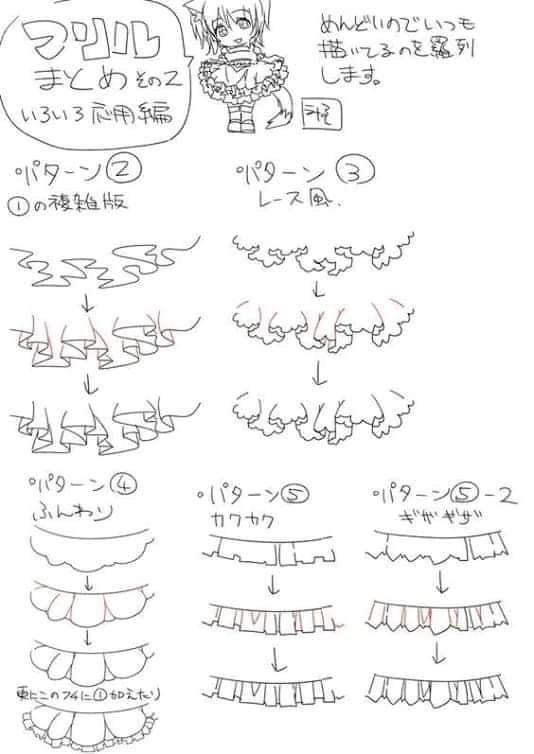 フリル
まとめ その2
いろいろ応用編
めんどいのでいつも
描いてるのを羅列
します。
パターン②
①の複雑版
パターン③
レース風.
パターン④
ふんわり
更にこのフチに①加えたり
パターン⑤
カクカク
パターン⑤-2
ギザギザ